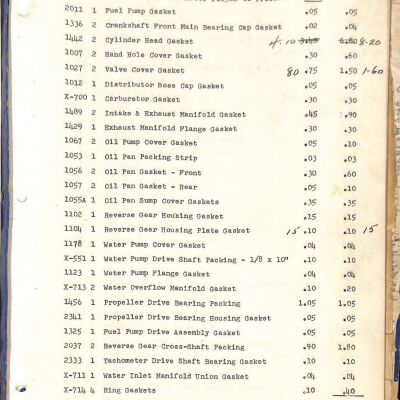 2011 1 Fuel Pump Gasket .05 .05
1336 2 Crankshaft Front Main Bearing Cap Gasket .02 .04
1442 2 Cylinder Head Gasket 4.10 3.40 6.80 8.20
1007 2 Hand Hole Cover Gasket .30 .60
1027 2 Valve Cover Gasket 80 .75 1.50 1.60
1012 1 Distributor Boss Cap Gasket .05 .05
X-700 1 Carburetor Gasket .30 .30
1489 2 Intake & Exhaust Manifold Gasket .45 .90
1429 1 Exhaust Manifold Flange Gasket .30 .30
1067 2 Oil Pump Cover Gasket .05 .10
1053 1 Oil Pan Packing Strip .03 .03
1056 2 Oil Pan Gasket - Front .30 .60
1057 2 Oil Pan Gasket - Rear .05 .10
1055A 1 Oil Pan Sump Cover Gaskets .35 .35
1102 1 Reverse Gear Housing Gasket .15 .15
1104 1 Reverse Gear Housing Plate Gasket 15 .10 .10 15
1178 1 Water Pump Cover Gasket .04 .04
X-551 1 Water Pump Drive Shaft Packing - 1/8 x 10" .10 .10
1123 1 Water Pump Flange Gasket .04 .04
X-713 2 Water Overflow Manifold Gasket .10 .20
1456 1 Propeller Drive Bearing Packing 1.05 1.05
2341 1 Propeller Drive Bearing Housing Gasket .05 .05
1325 1 Fuel Pump Drive Assembly Gasket .05 .05
2037 2 Reverse Gear Cross-Shaft Packing .90 1.80
2333 1 Tachometer Drive Shaft Bearing Gasket .10 .10
X-711 1 Water Inlet Manifold Union Gasket .04 .04
X-714 4 Ring Gaskets .10 .40